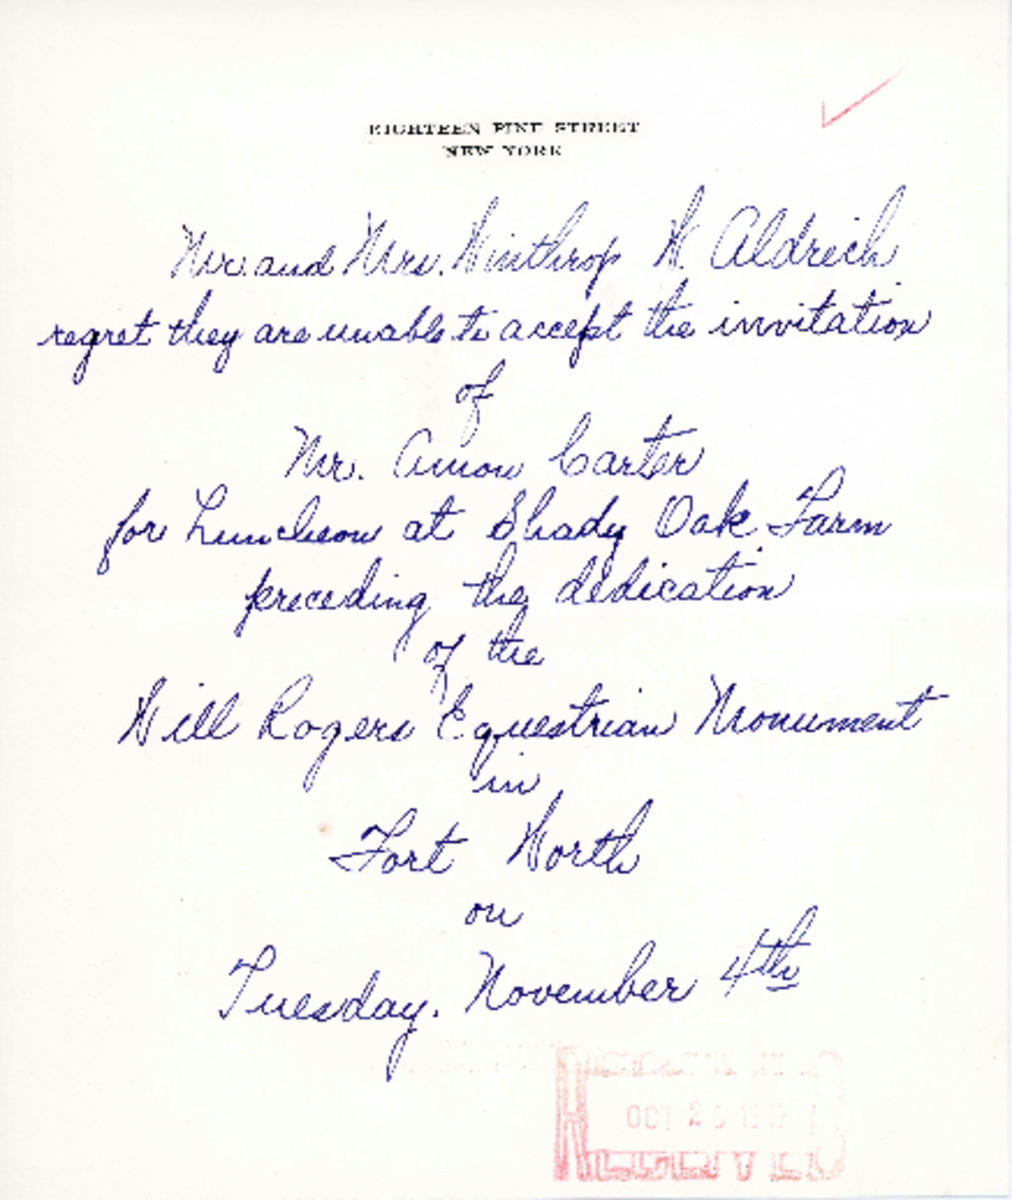 EIGHTEEN PINE STREET
NEW YORK
Mr. and Mrs. Winthrop W. Aldrich
regret they are unable to accept the invitation
of
Mr. Amon Carter
for Luncheon at Shady Oak Farm
preceding the dedication
of the
Will Rogers Equestrian Monument
in
Fort Worth
on
Tuesday, November 4th
OCT
RECEIVED